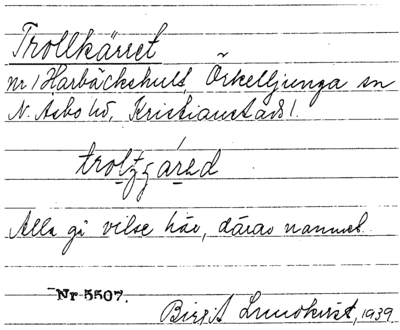 Trollkärret
nr 1 Harbäckshult, Örkelljunga sn
N. Åsbo hd, Kristianstads l.
Alla gå vilse här, därav namnet.
Nr 5507.
Birgit Lundkvist, 1939.